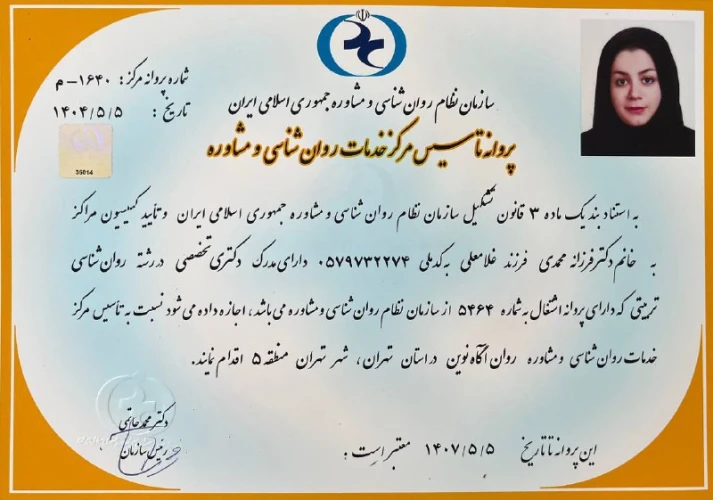 شماره پروانه مرکز: ۱۶۴۰-م
تاریخ: ۱۴۰۴/۵/۵
35014
سازمان نظام روان شناسی و مشاوره جمهوری اسلامی ایران
پروانه تاسیس مرکز خدمات روان شناسی و مشاوره
به استناد بند یک ماده ۳ قانون تشکیل سازمان نظام روان شناسی و مشاوره جمهوری اسلامی ایران و تأیید کمیسیون مراکز
به خانم دکتر فرزانه محمدی فرزند غلامعلی به کد ملی ۰۵۷۹۷۳۲۲۷۴ دارای مدرک دکتری تخصصی در رشته روان شناسی
تربیتی که دارای پروانه اشتغال به شماره ۵۴۶۴ از سازمان نظام روان شناسی و مشاوره می باشد، اجازه داده می شود نسبت به تأسیس مرکز
خدمات روان شناسی و مشاوره روان آگاه نوین در استان تهران، شهر تهران منطقه ۵ اقدام نمایند.
دکتر محمد حاتمی
رئیس سازمان
این پروانه تا تاریخ ۱۴۰۷/۵/۵ معتبر است.